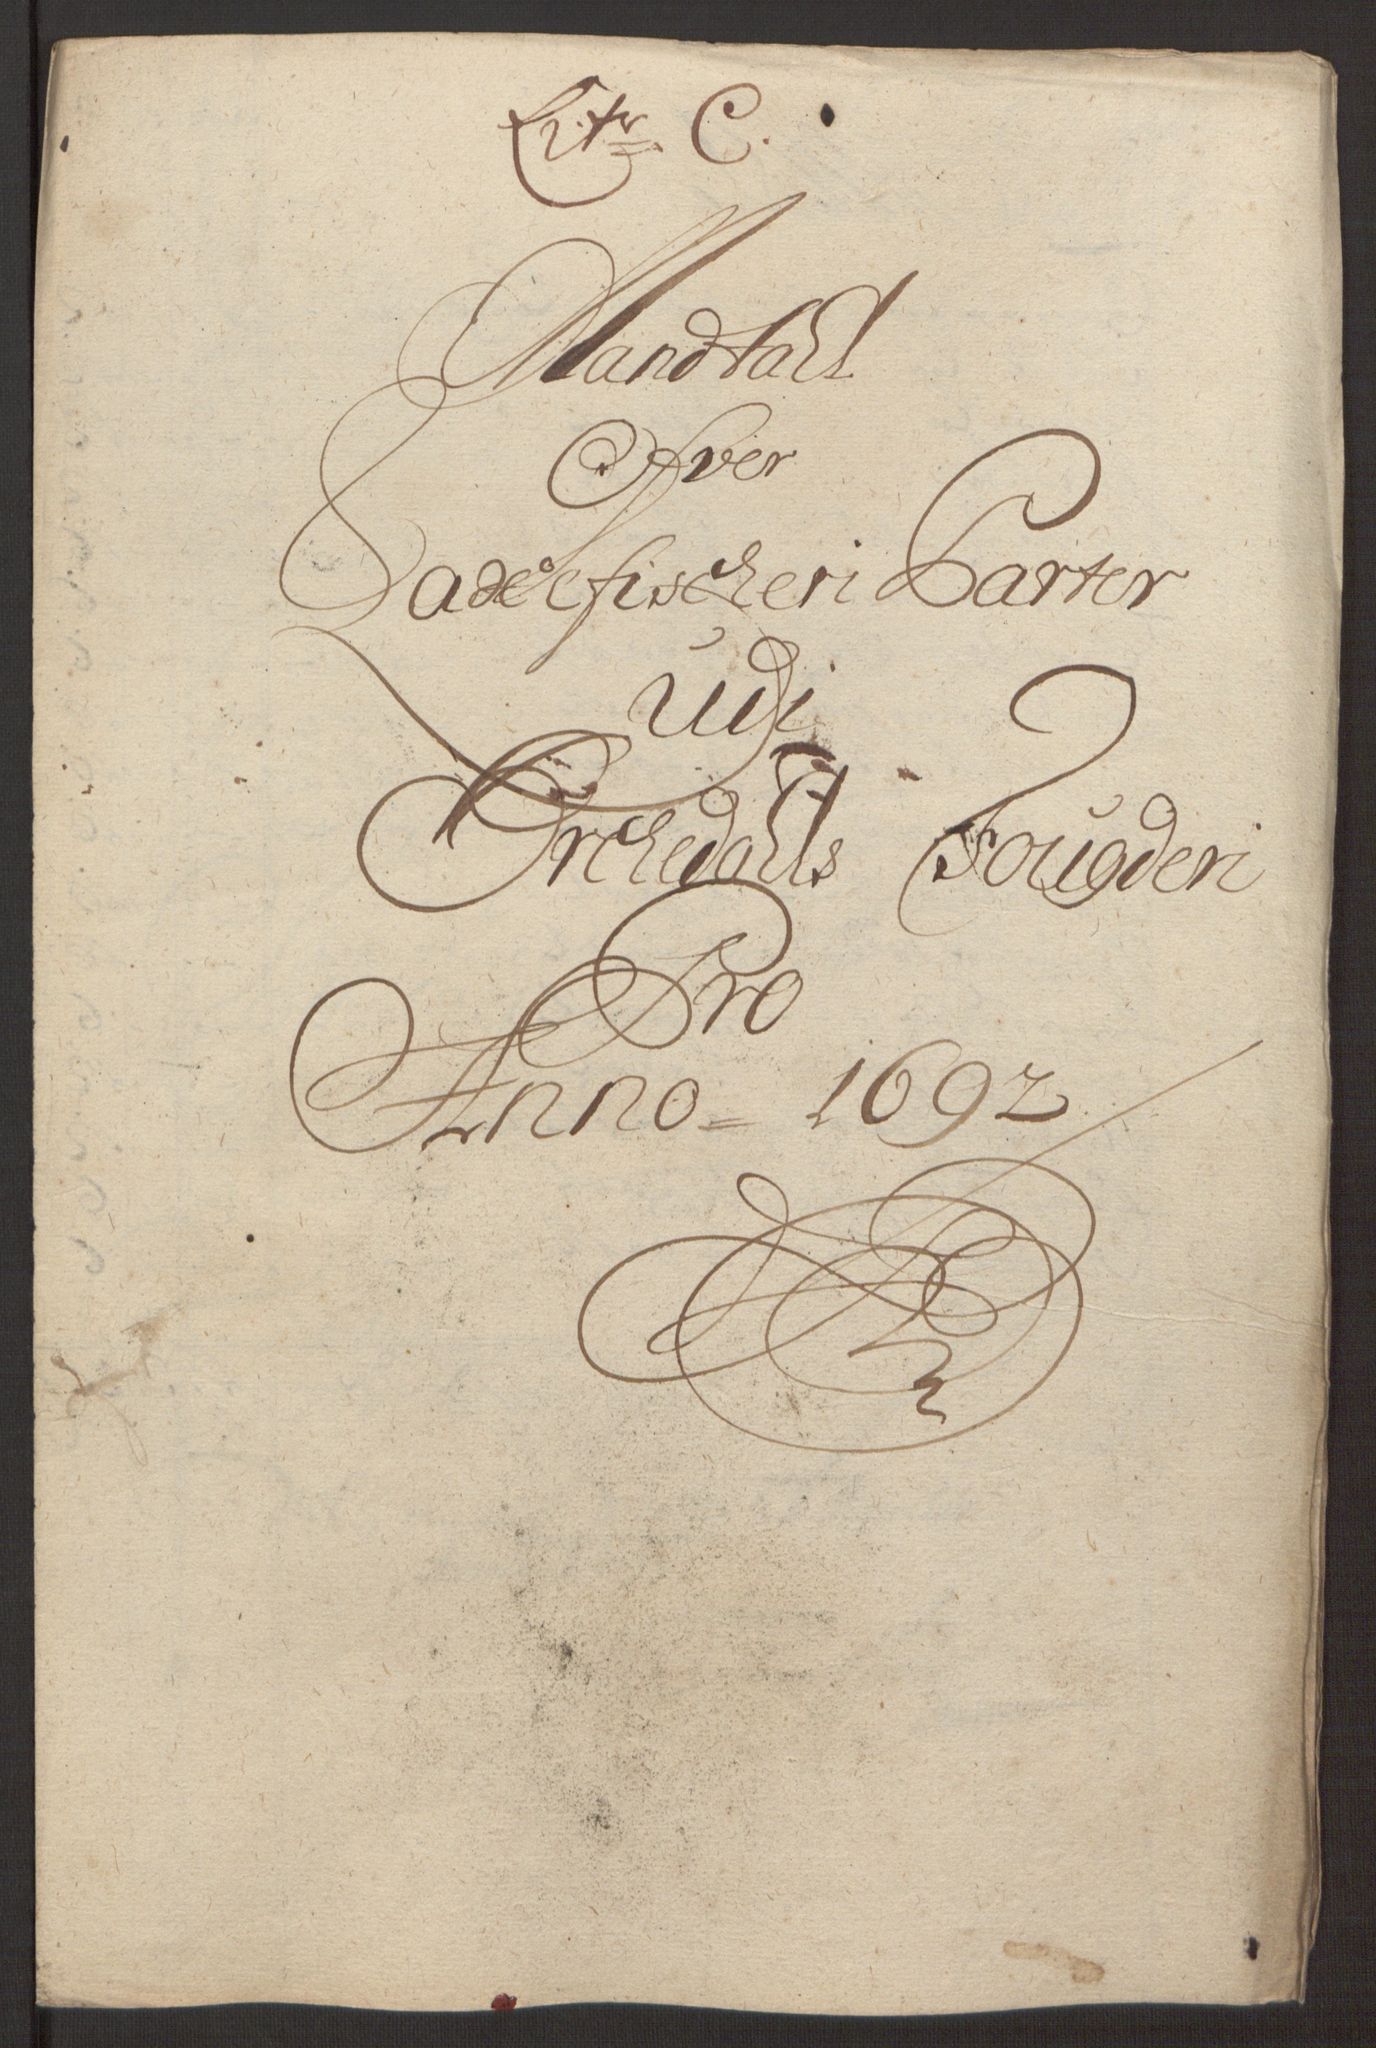 Litr: C.
Mandtall
Ofver
Laxefischeri Parter
Udj
Orchedahls Fougderi
Pro
Anno= 1692